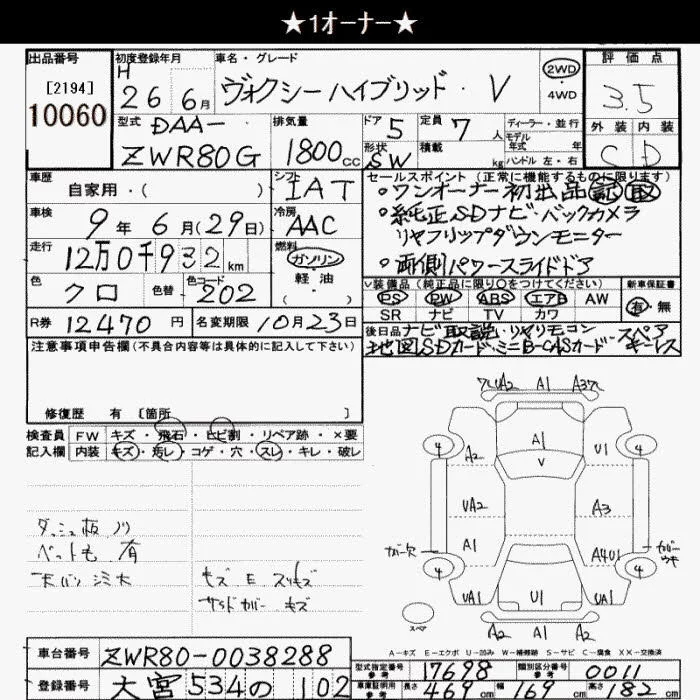 ★1オーナー★
出品番号
[2194]
10060
初度登録年月
H 26 6月
車名・グレード
ヴォクシーハイブリッド・V
2WD
・4WD
評価点
3.5
外装 内装
C D
型式
DAA-
ZWR80G
排気量
1800cc
ドア 5
定員 7人
ディーラー・並行
モデル年式 年式
形状 SW
積載 kg
ハンドル 左・右
車歴
自家用・( )
シフト
IAT
車検
9年6月(29日)
冷房
AAC
走行
12万0千932km
燃料
ガソリン
軽油
・( )
色
クロ
色替
色コード
202
R券
12470円
名変期限 10月23日
セールスポイント (正常に機能するものに限ります)
・ワンオーナー初出品 記 取
・純正SDナビ・バックカメラ
リヤフリップダウンモニター
・両側パワースライドドア
装備品 (純正品に限り○をつけてください)
新車保証書
PS PW ABS エアB AW
有・無
SR ナビ TV カワ
後日品 ナビ取説・リヤリモコン・スペア
地図SDカード・ミニB-CASカード・キーレス
注意事項申告欄 (不具合内容等は具体的に記入して下さい)
修復歴 有 [箇所 ]
検査員 FW キズ・飛石・ヒビ割・リペア跡・×要
記入欄 内装 キズ・汚レ・コゲ・穴・スレ・キレ・破レ
ダッシュ板ノリ
ペット毛 有
天バリ シミ大
キズ E スリキズ
サイドカバー キズ
A2 A1 A3
4 A1 4
A2 V U1
UA2 A3
A1 A4U1
カバー欠 カバーウキ
4 4
UA1 U1 UA1
スペア
A2 A1 A2
A-キズ E-エクボ U-凹み W-補修跡 S-サビ C-腐食 XX-交換済
車台番号 ZWR80-0038288
型式指定番号 参考 17698
類別区分番号 参考 0011
登録番号 大宮 534の 102
車庫証明用 参考 長さ 469cm 幅 169cm 高さ 182cm